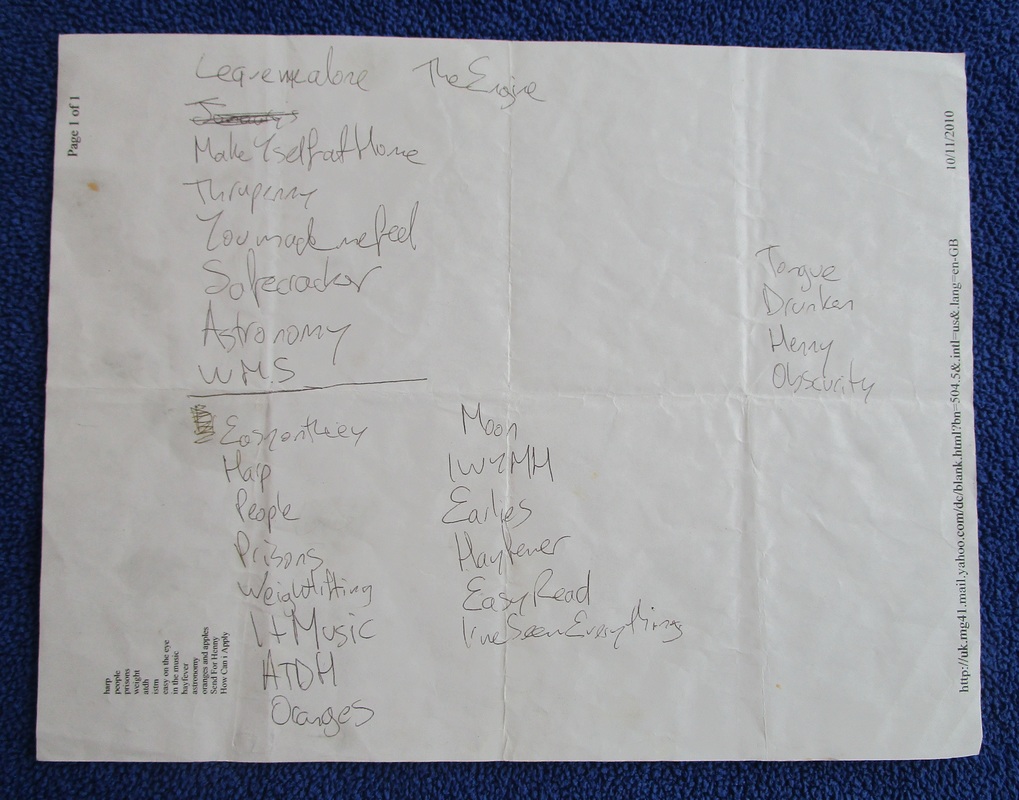 Leavemealone
The Engine
MakeYselfatHome
Thrupenny
Youmademefeel
Safecracker
Astronomy
W.M.S
Easyontheey
Harp
People
Prisons
Weightlifting
ItMusic
ATDH
Oranges
Moon
IWYMH
Earlies
Hayfever
EasyRead
I'veSeenEverything
Tongue
Drunken
Henny
Obscurity
Page 1 of 1
10/11/2010
http://uk.mg41.mail.yahoo.com/dc/blank.html?bn=504.5&.intl=us&.lang=en-GB
harp
people
prisons
weight
atdh
easy on the eye
in the music
hayfever
astronomy
oranges and apples
Send For Henny
How Can i Apply